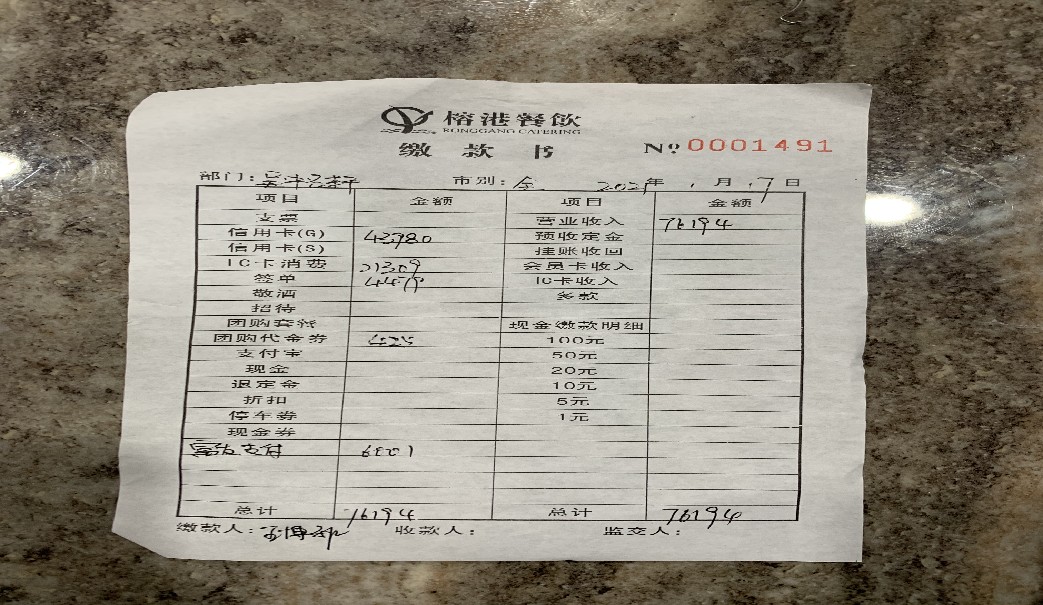 榕港餐飲
RONGGANG CATERING
缴款书 № 0001491
部门: 市别:全 2021年1月17日
项目 金额 项目 金额
支票 营业收入 76194
信用卡(G) 43980 预收定金
信用卡(S) 挂账收回
IC卡消费 会员卡收入
签单 IC卡收入
敬酒 多款
招待
团购套餐 现金缴款明细
团购代金券 100元
支付宝 50元
现金 20元
退定金 10元
折扣 5元
停车券 1元
现金券
支付
总计 76194 总计 76194
缴款人: 收款人: 监交人: